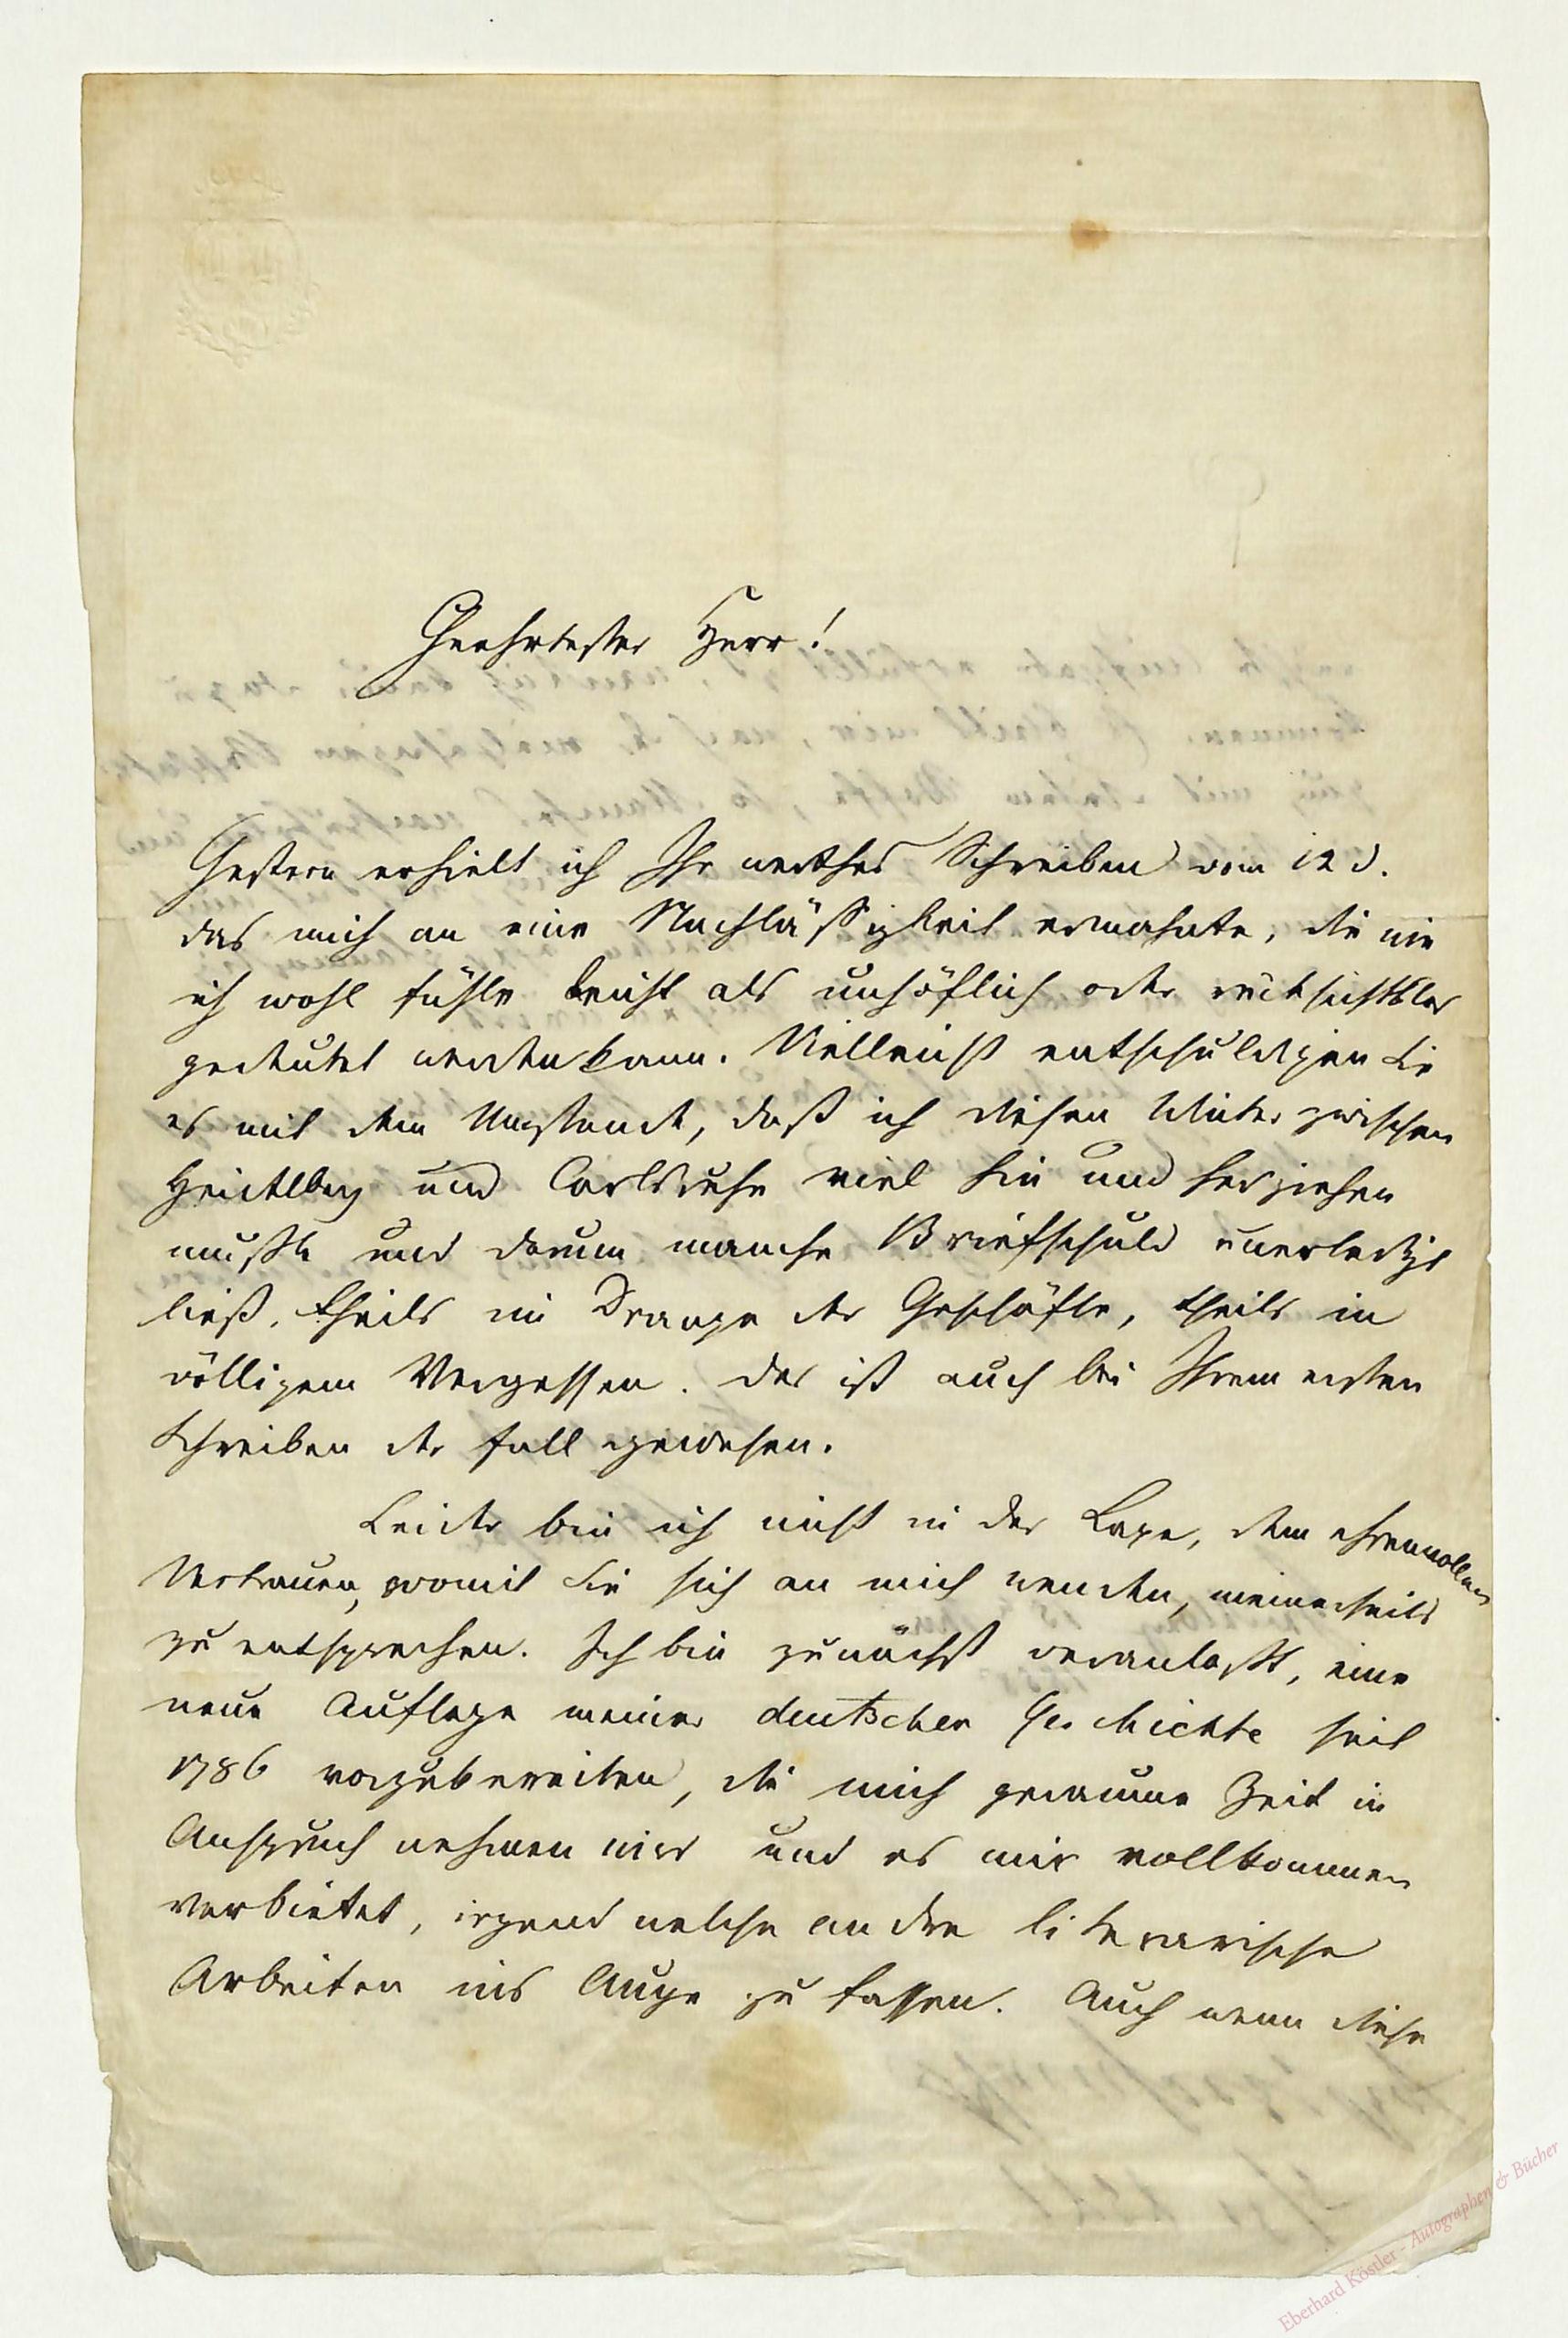 Geehrtester Herr!
Gestern erhielt ich Ihr werthes Schreiben vom 12 d.
das mich an eine Nachläßigkeit ermahnte, die wie
ich wohl fühle leicht als unhöflich oder rücksichtslos
gedeutet werden kann. Vielleicht entschuldigen Sie
es mit dem Umstande, daß ich diesen Winter zwischen
Heidelberg und Carlsruhe viel hin und herziehen
mußte und darum manche Briefschuld unerledigt
ließ, theils im Drange der Geschäfte, theils in
völligem Vergessen. Das ist auch bei Ihrem ersten
Schreiben der Fall gewesen.
Leider bin ich nicht in der Lage, dem ehrenvollen
Vertrauen, womit Sie sich an mich wenden, meinerseits
zu entsprechen. Ich bin zunächst veranlaßt, eine
neue Auflage meiner deutschen Geschichte seit
1786 vorzubereiten, die mich geraume Zeit in
Anspruch nehmen wird und es mir vollkommen
verbietet, irgend welche andre literarische
Arbeiten ins Auge zu fassen. Auch wenn diese
Eberhard Köstler - Autographen & Bücher